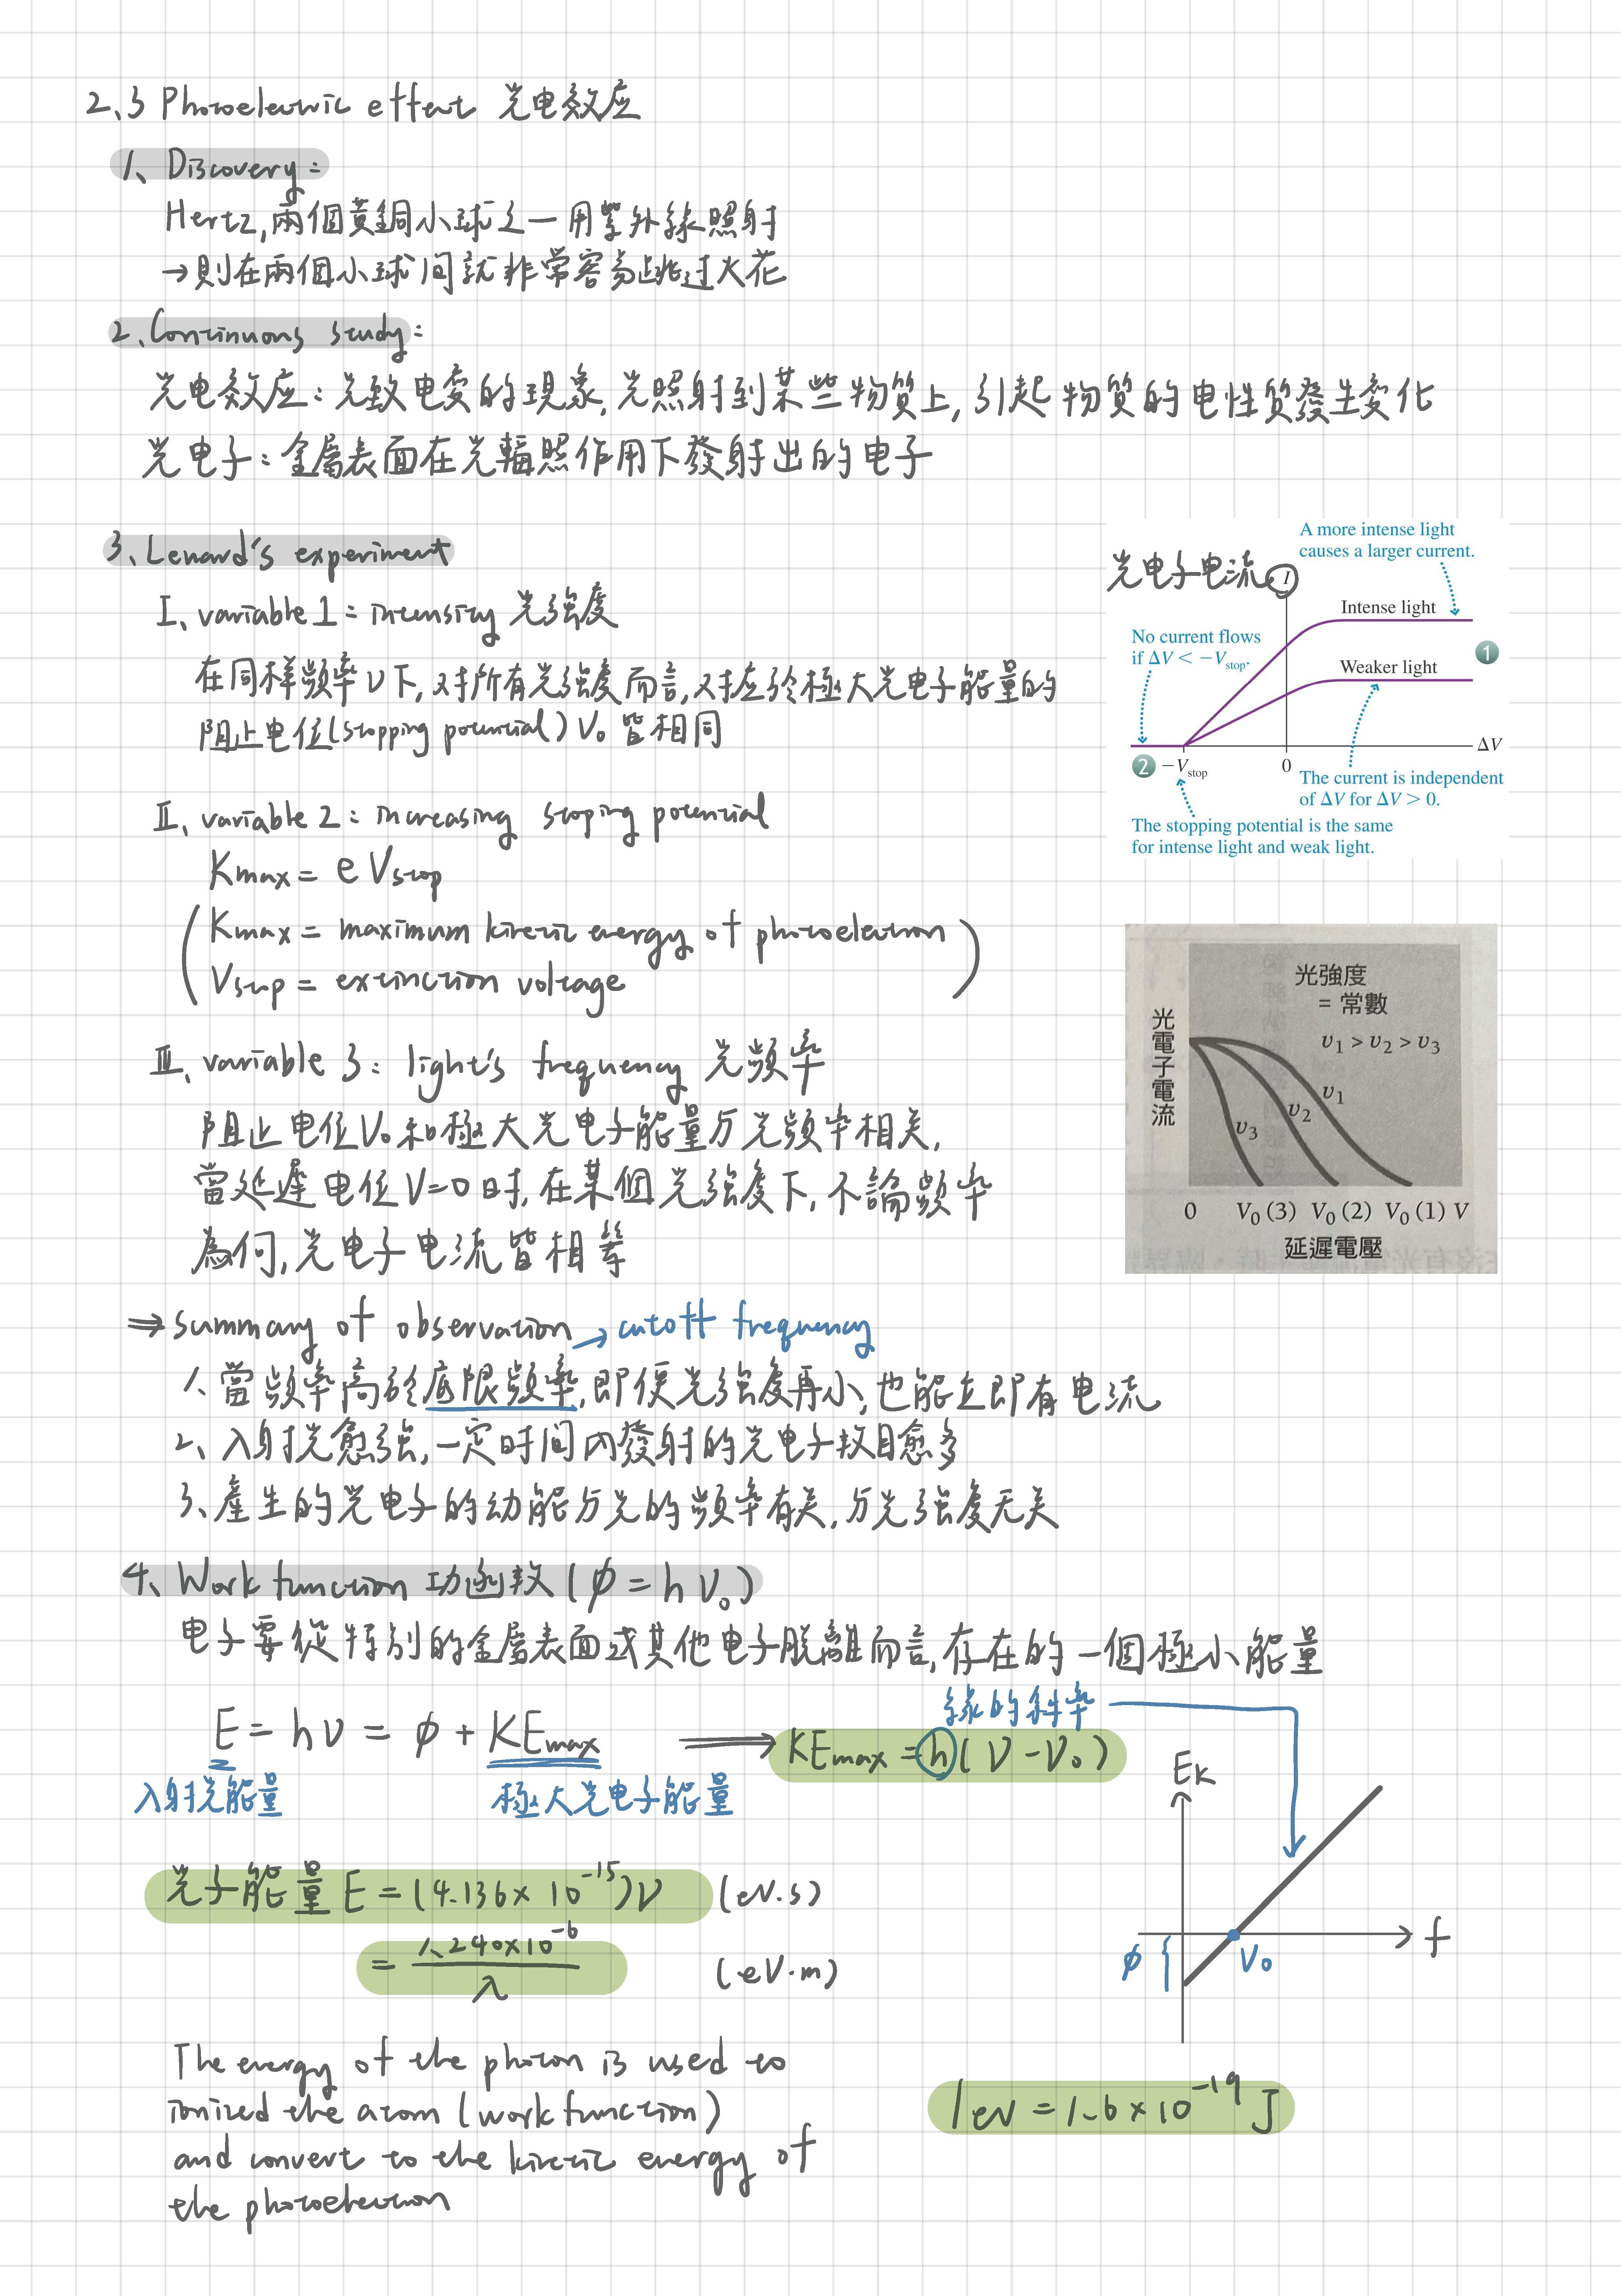 2.3 Photoelectric effect 光电效应
1、Discovery:
Hertz,兩個黃銅小球之一用紫外線照射
→則在兩個小球间就非常容易跳过火花
2.Continuous study:
光电效应:光致电变的現象,光照射到某些物質上,引起物質的电性質發生变化
光电子:金屬表面在光輻照作用下發射出的电子
3、Lenard's experiment
I、variable 1=intensity 光強度
在同样頻率ν下,对所有光強度而言,对应於極大光电子能量的
阻止电位(stopping potential)V₀皆相同
A more intense light
causes a larger current.
光电子电流 I
Intense light
No current flows
if ΔV < −Vstop.
1
Weaker light
ΔV
2 −Vstop
0
The current is independent
of ΔV for ΔV > 0.
The stopping potential is the same
for intense light and weak light.
II、variable 2:increasing stoping potential
Kmax = e Vstop
Kmax = maximum kinetic energy of photoelectron
Vstop = extinction voltage
III、variable 3: light's frequency 光頻率
阻止电位V₀和極大光电子能量与光頻率相关,
當延遲电位V=0时,在某個光強度下,不論頻率
為何,光电子电流皆相等
光強度
= 常數
υ₁ > υ₂ > υ₃
光電子電流
υ₁
υ₂
υ₃
0 V₀ (3) V₀ (2) V₀ (1) V
延遲電壓
⇒ summary of observation → cutoff frequency
1、當頻率高於底限頻率,即便光強度再小,也能立即有电流
2、入射光愈強,一定时间內發射的光电子数目愈多
3、產生的光电子的动能与光的頻率有关,与光強度无关
4、Work function 功函数(ϕ=hν₀)
电子要從特別的金屬表面或其他电子脫離而言,存在的一個極小能量
線的斜率
E = hν = ϕ + KEmax ⟹ KEmax = h(ν−ν₀)
入射光能量
極大光电子能量
Eₖ
光子能量 E = (4.136×10⁻¹⁵)ν (eV·s)
= 1.240×10⁻⁶/λ (eV·m)
f
ϕ
ν₀
The energy of the photon is used to
ionized the atom (work function)
and convert to the kinetic energy of
the photoelectron
1eV = 1.6×10⁻¹⁹ J